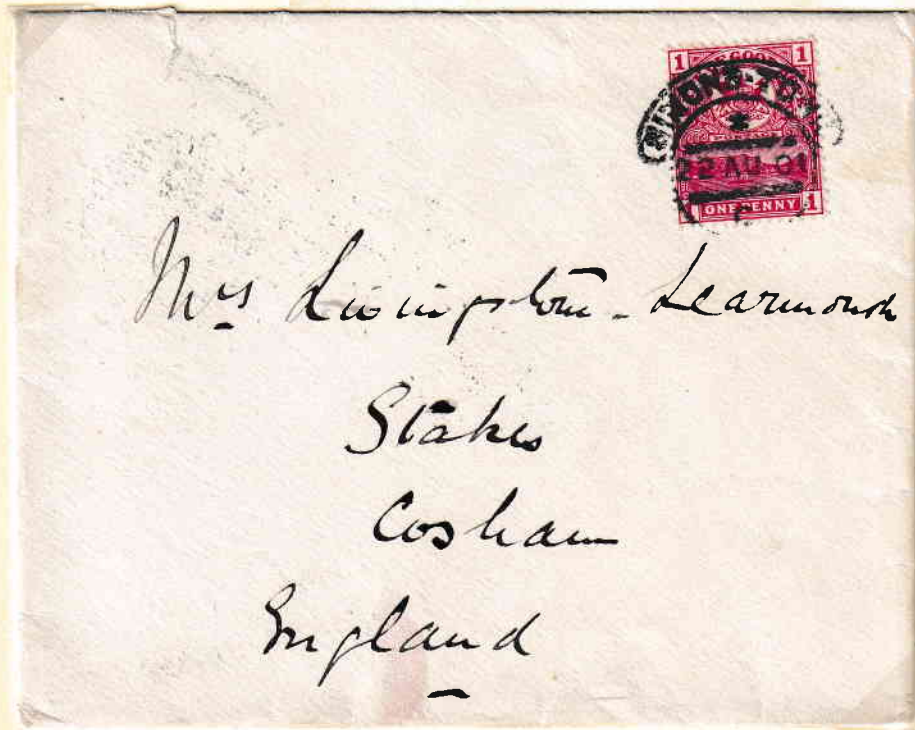 1 1
SIMONS-TOWN
22 AU 01
1 ONE PENNY 1
Mrs Livingstone-Learmonth
Stakes
Cosham
England